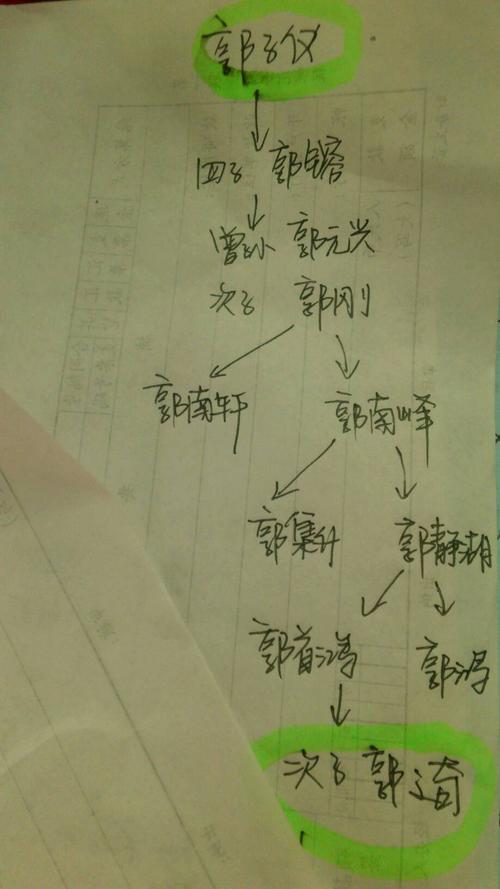 郭子仪
四子 郭镕
曾孙 郭元兴
次子 郭刚
郭南轩 郭南峰
郭集升 郭静湖
郭首鸿 郭鸿
次子 郭